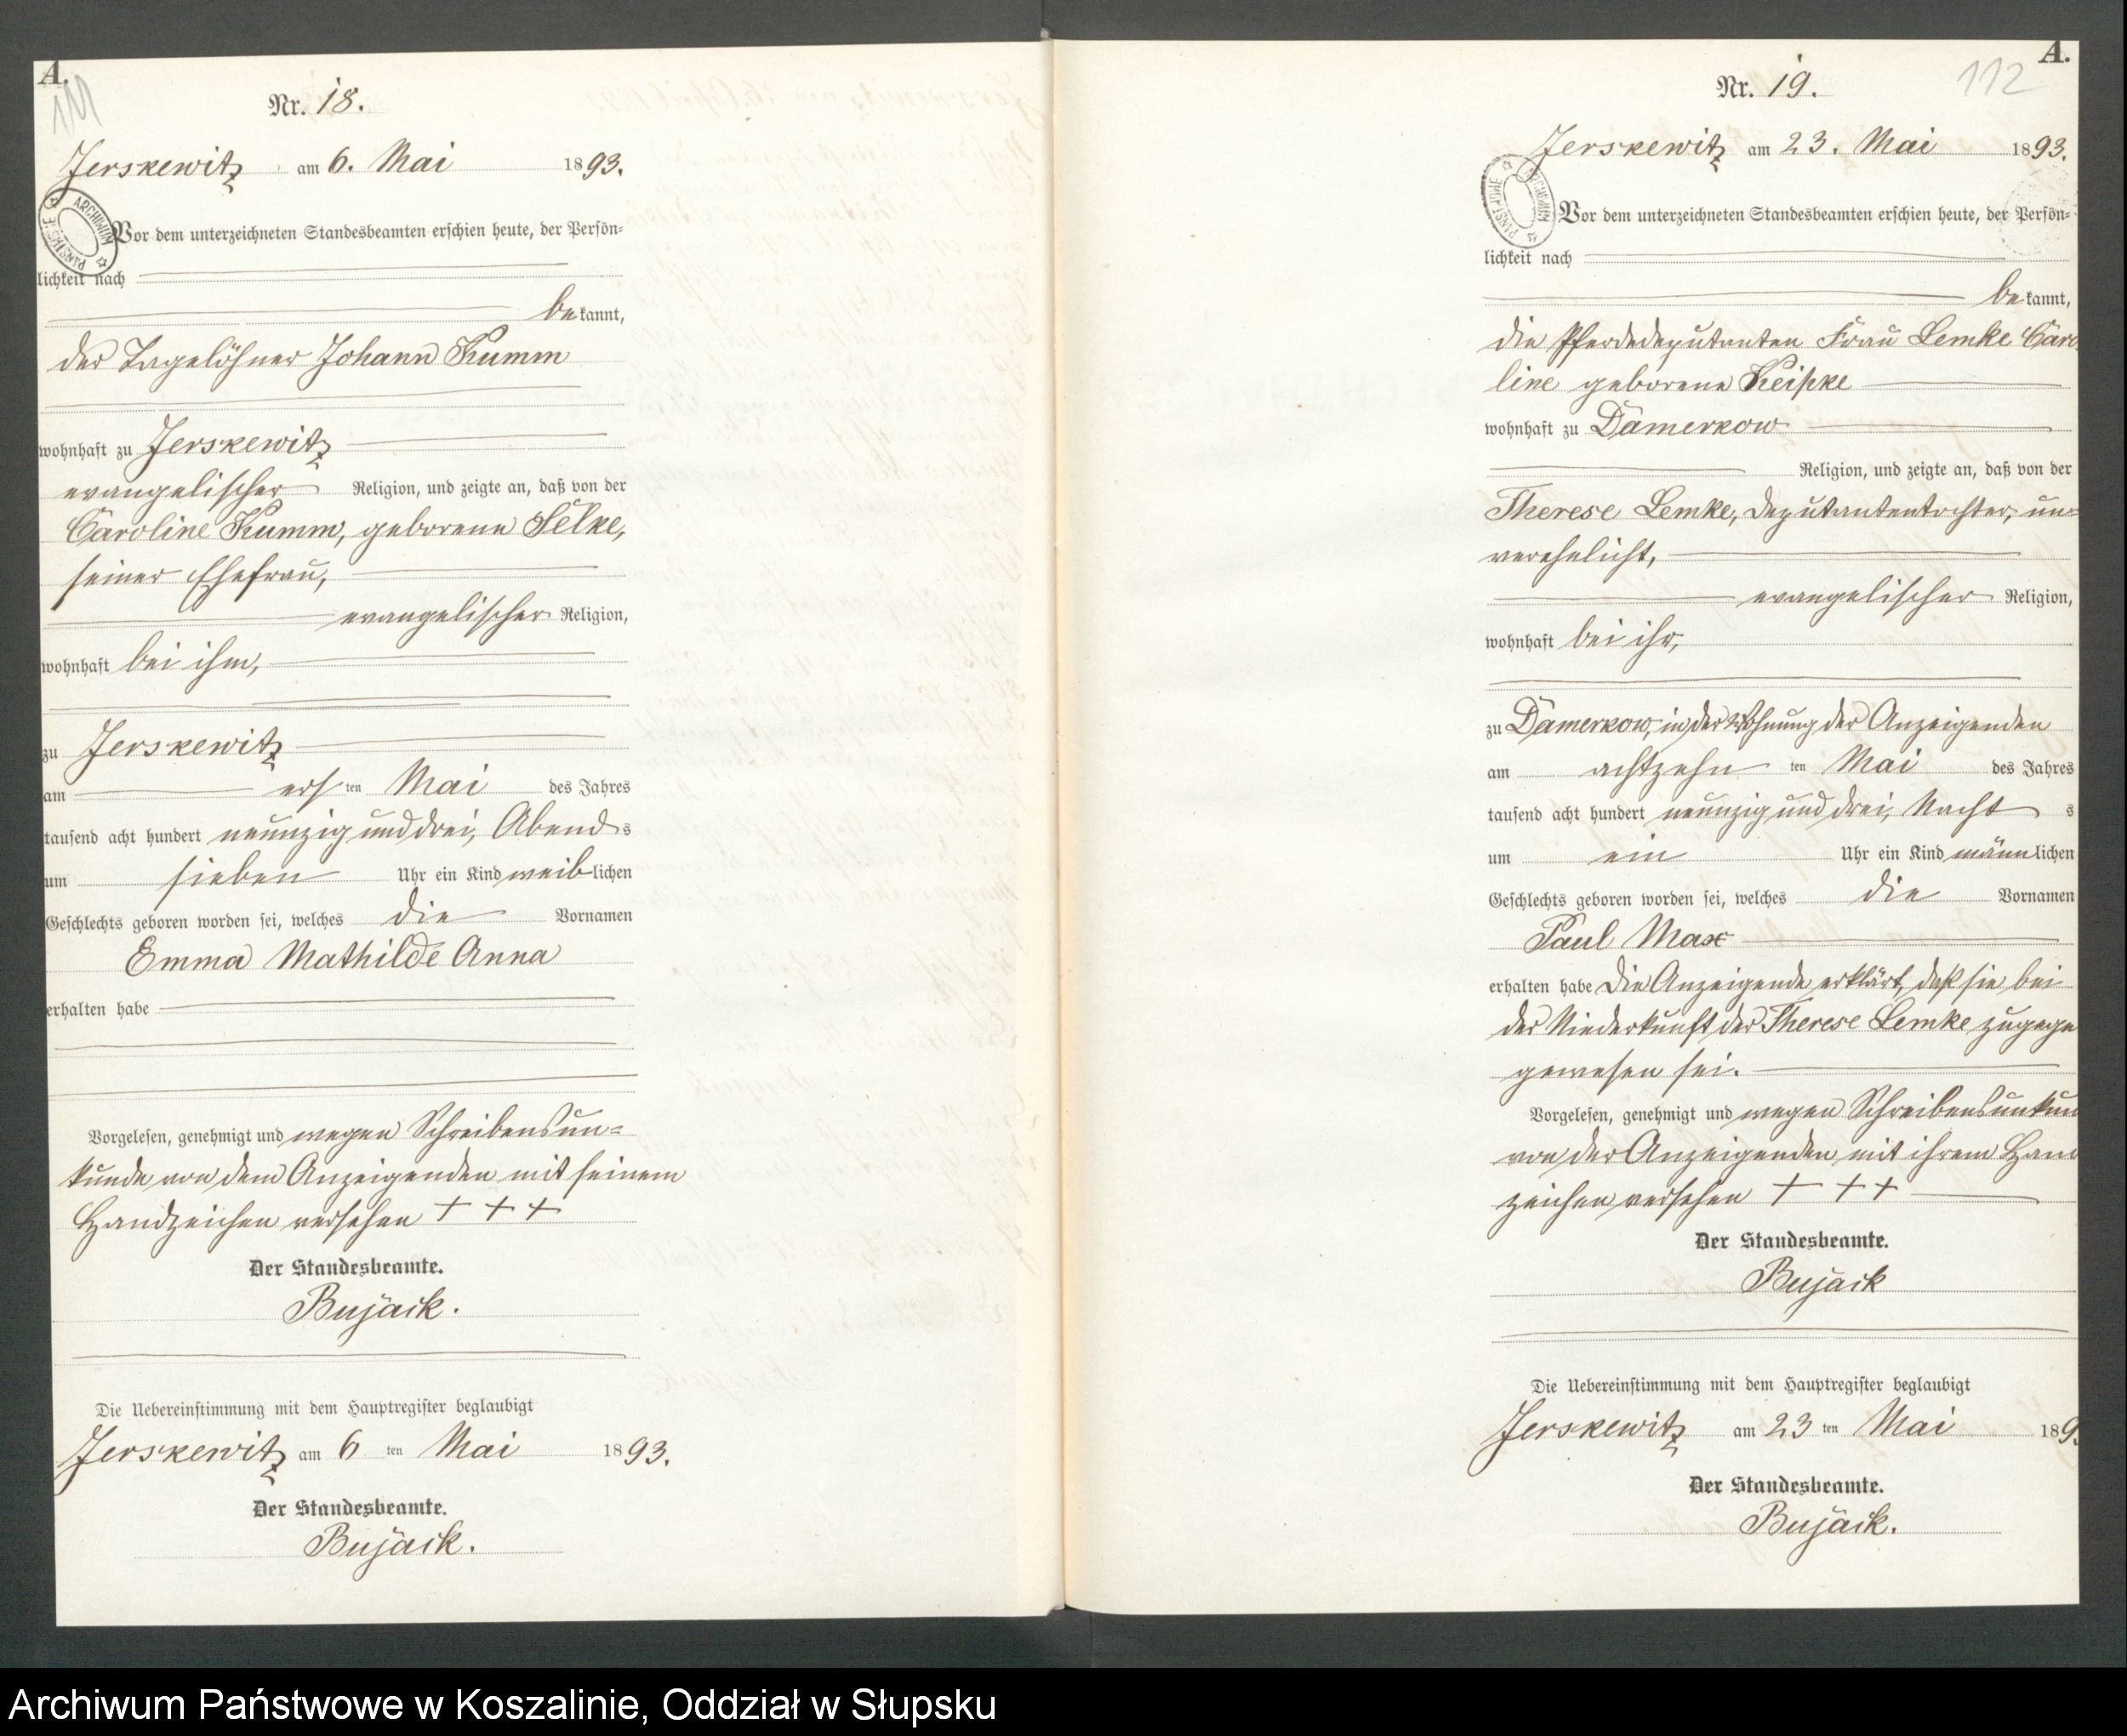 A.
111
Nr. 18.
Jerskewitz am 6. Mai 1893.
Vor dem unterzeichneten Standesbeamten erschien heute, der Persön=
lichkeit nach
bekannt,
der Tagelöhner Johann Kumm
wohnhaft zu Jerskewitz
evangelischer Religion, und zeigte an, daß von der
Caroline Kumm, geborene Selke,
seiner Ehefrau,
evangelischer Religion,
wohnhaft bei ihm,
zu Jerskewitz
am ersten Mai des Jahres
tausend acht hundert neunzig und drei, Abends
um sieben Uhr ein Kind weiblichen
Geschlechts geboren worden sei, welches die Vornamen
Emma Mathilde Anna
erhalten habe
Vorgelesen, genehmigt und wegen Schreibensun=
kunde von dem Anzeigenden mit seinem
Handzeichen versehen + + +
Der Standesbeamte.
Bujack.
Die Uebereinstimmung mit dem Hauptregister beglaubigt
Jerskewitz am 6 ten Mai 1893.
Der Standesbeamte.
Bujack.
ARCHIWUM PAŃSTWOWE
A.
112
Nr. 19.
Jerskewitz am 23. Mai 1893.
Vor dem unterzeichneten Standesbeamten erschien heute, der Persön=
lichkeit nach
bekannt,
die Pferdedeputanten Frau Lemke Caro
line geborene
wohnhaft zu Damerkow
Religion, und zeigte an, daß von der
Therese Lemke, Deputantentochter, un=
verehelicht,
evangelischer Religion,
wohnhaft bei ihr,
zu Damerkow, in der Wohnung der Anzeigenden
am achtzehn ten Mai des Jahres
tausend acht hundert neunzig und drei, Nachts
um ein Uhr ein Kind männlichen
Geschlechts geboren worden sei, welches die Vornamen
Paul Max
erhalten habe Die Anzeigende erklärt, daß sie bei
der Niederkunft der Therese Lemke zugege
gewesen sei.
Vorgelesen, genehmigt und wegen Schreibensunkun
von der Anzeigenden mit ihrem Han
zeichen versehen + + +
Der Standesbeamte.
Bujack
Die Uebereinstimmung mit dem Hauptregister beglaubigt
Jerskewitz am 23 ten Mai 189
Der Standesbeamte.
Bujack.
ARCHIWUM PAŃSTWOWE
Archiwum Państwowe w Koszalinie, Oddział w Słupsku